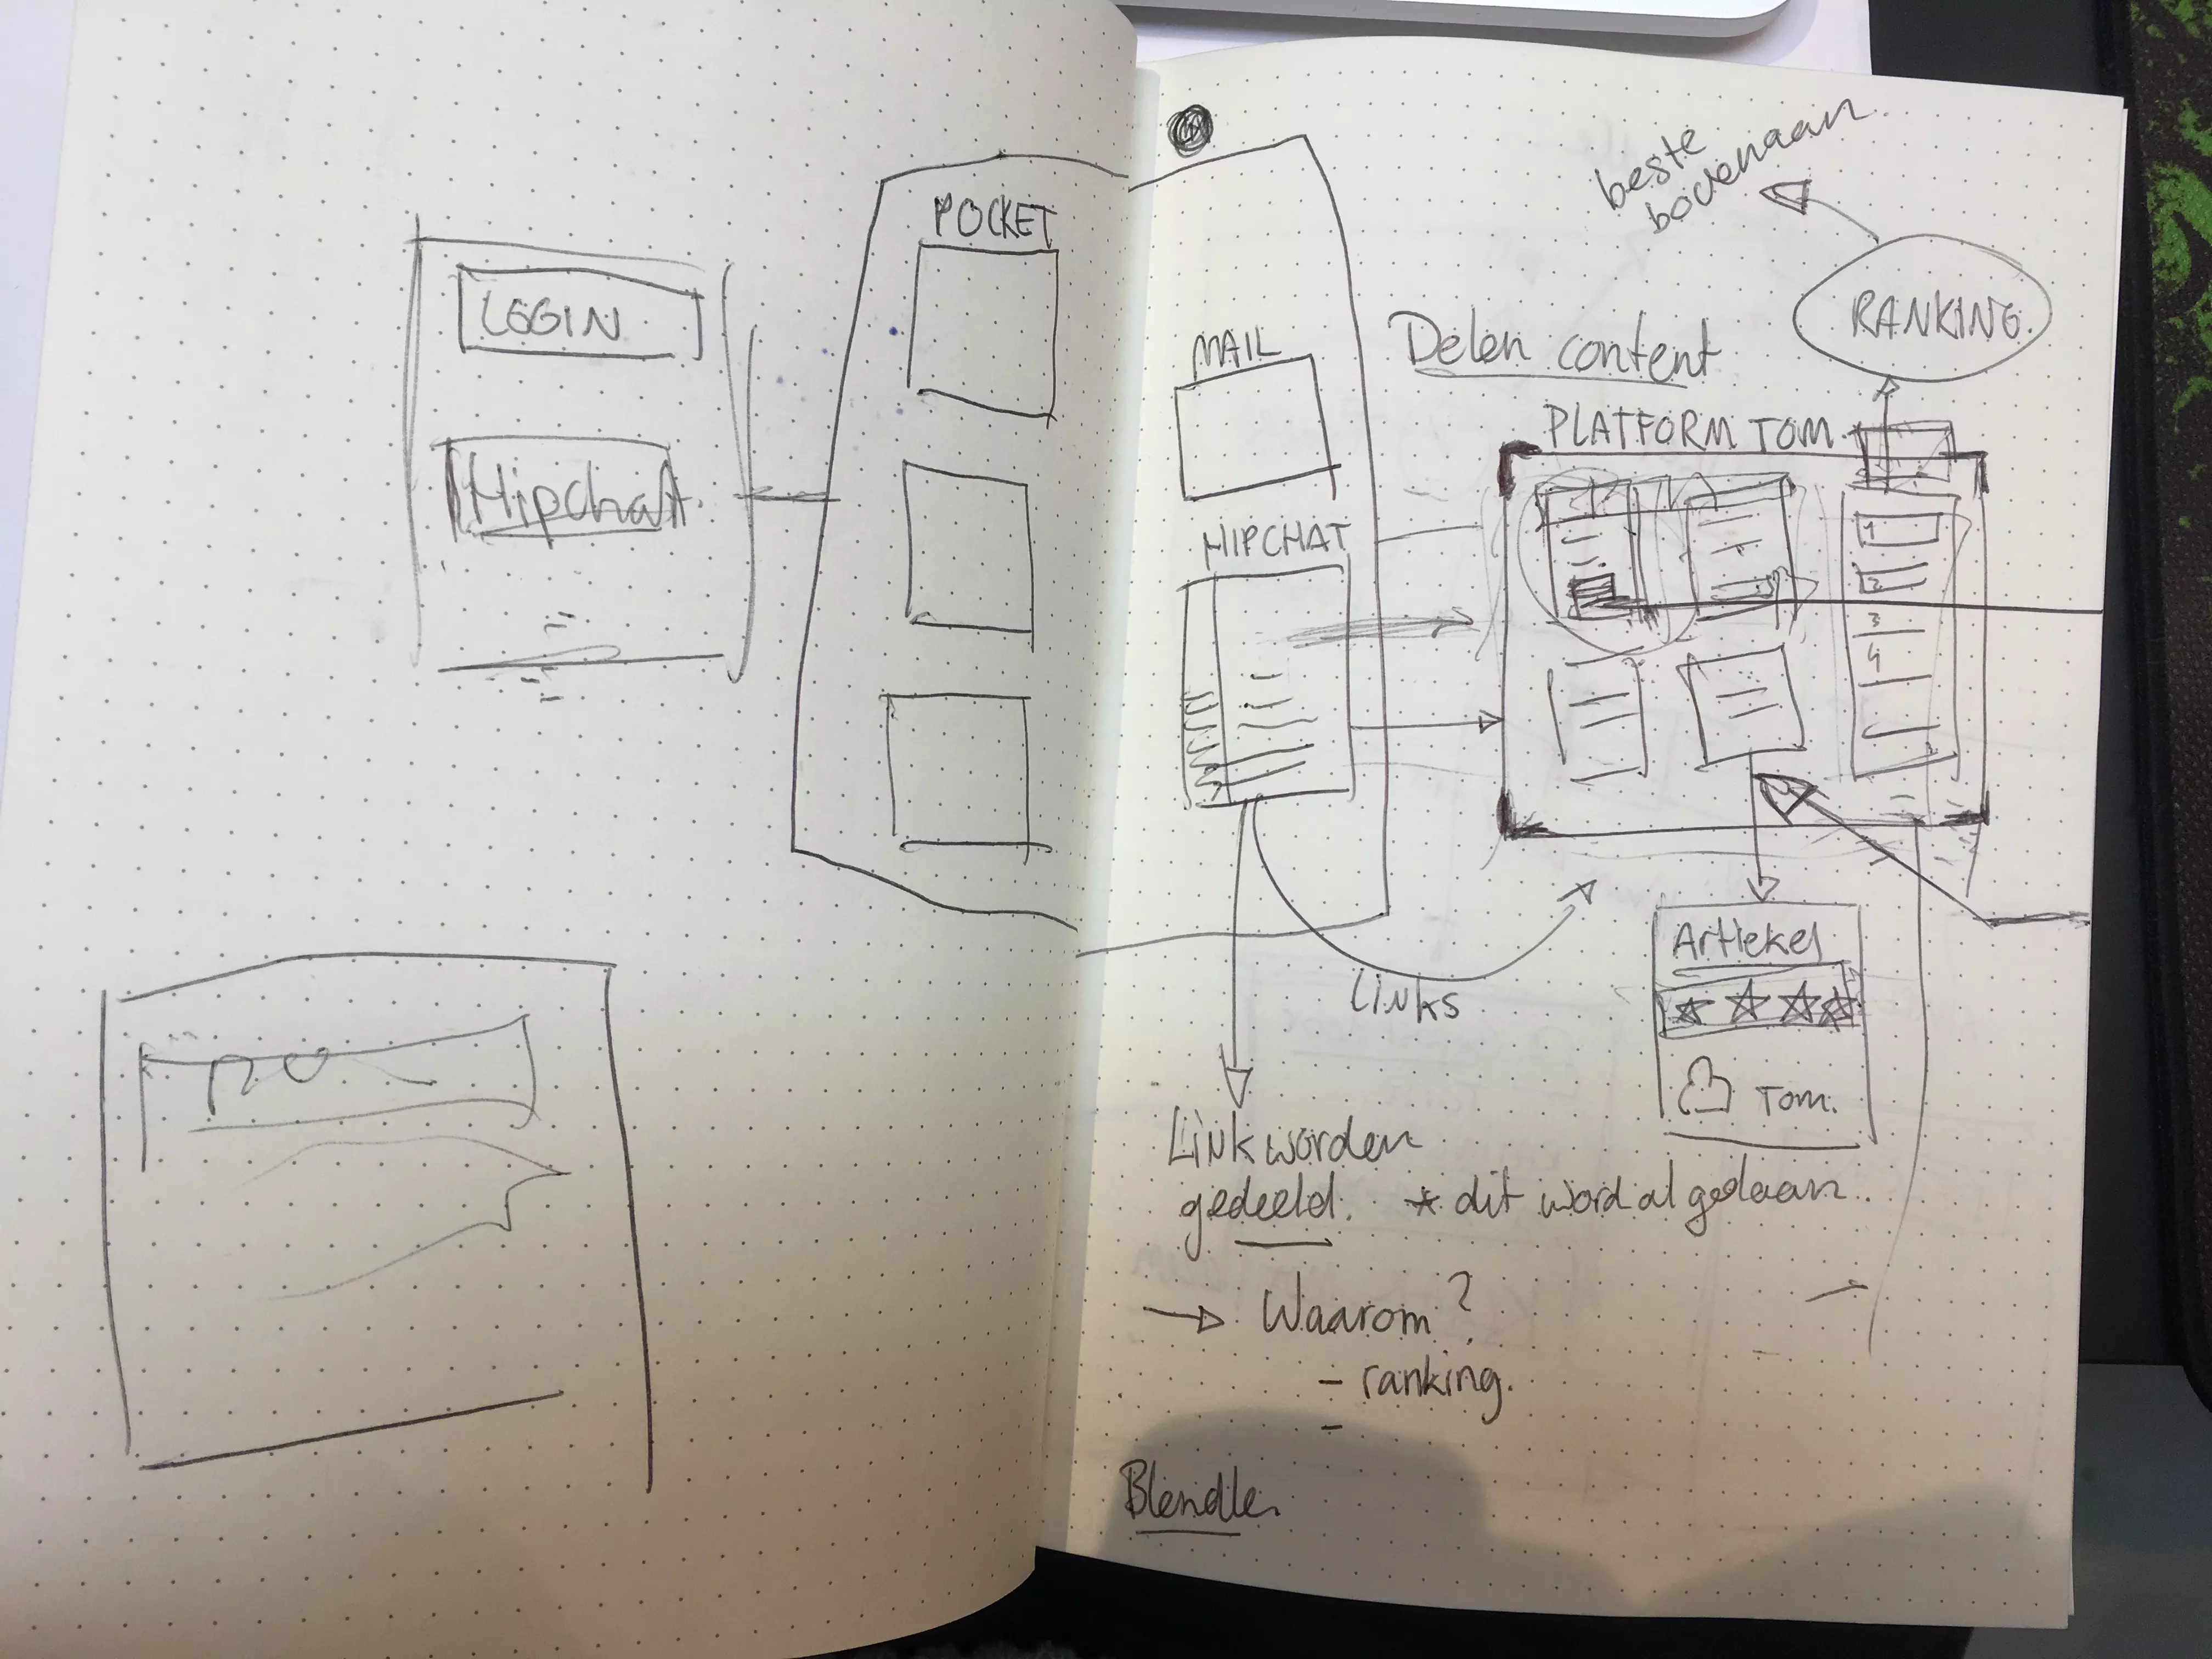 LOGIN
Hipchat.
POCKET
MAIL
HIPCHAT
Delen content
beste
bovenaan.
RANKING.
PLATFORM TOM
1
2
3
4
Links
Artiekel
Tom.
Link worden
gedeeld. * dit word al gedaan.
→ Waarom?
- ranking.
-
Blendle.